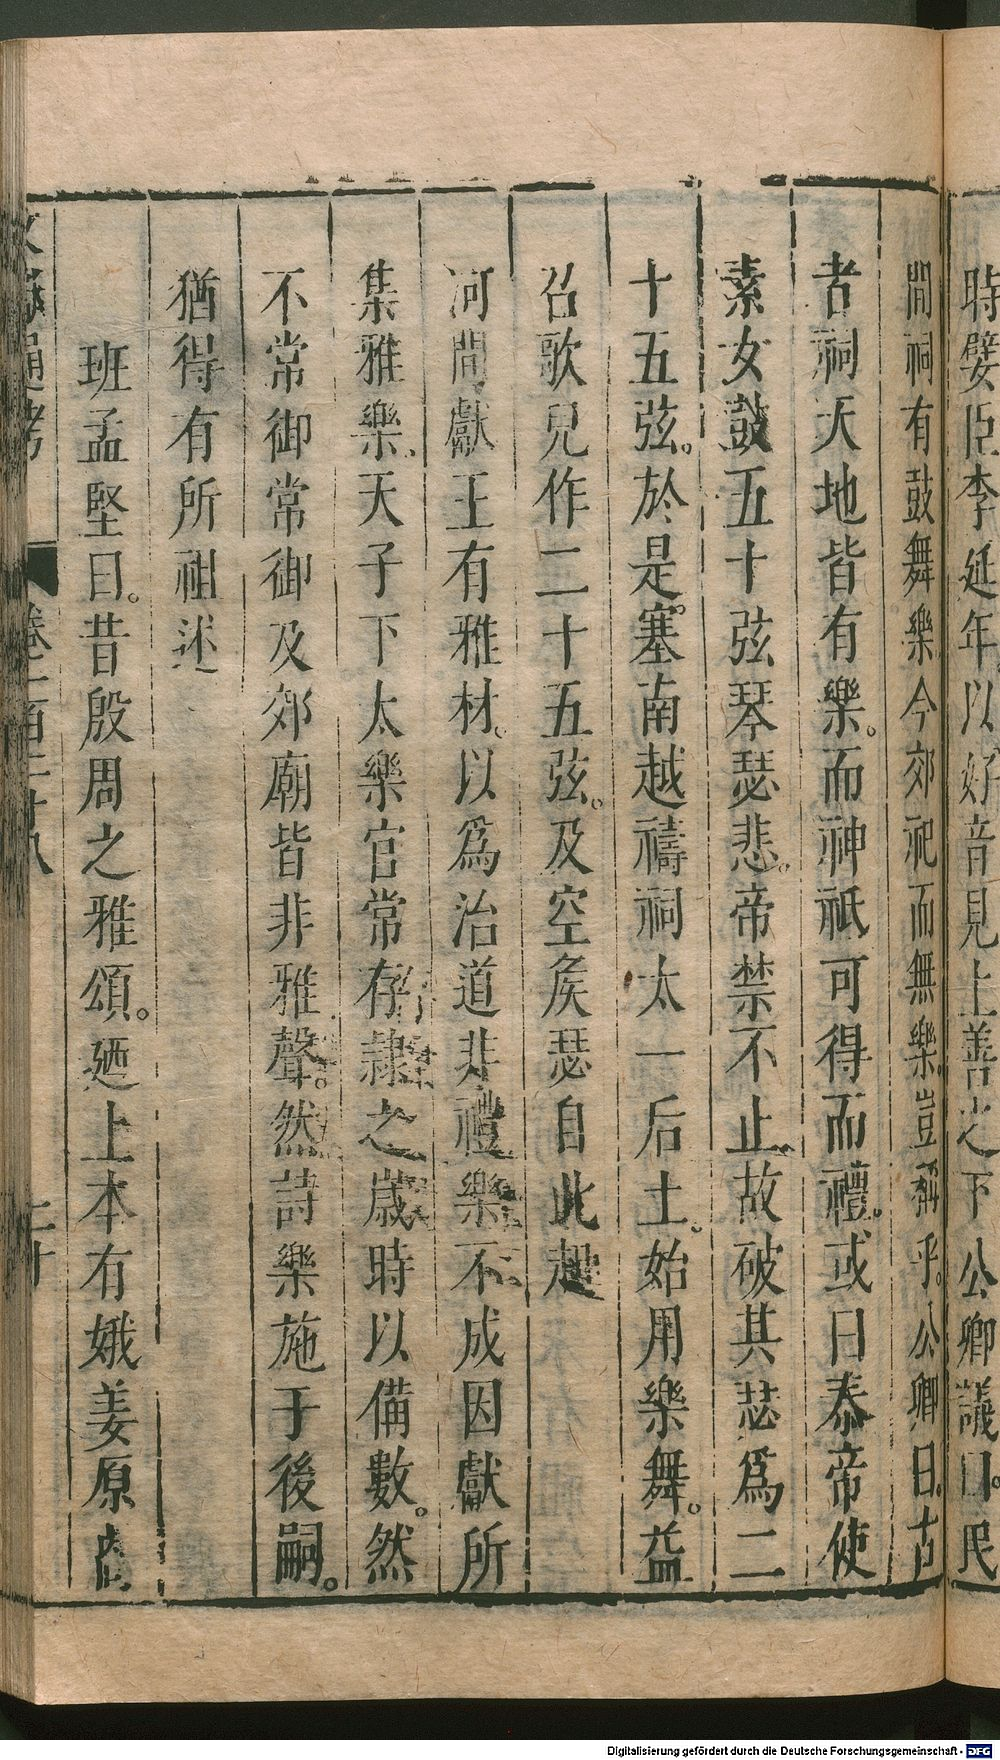 時嬖臣李延年以好音見上善之下公卿議曰民
間祠有鼓舞樂今郊祀而無樂豈稱乎公卿曰古
者祠天地皆有樂而神祇可得而禮或曰泰帝使
素女鼓五十弦琴瑟悲帝禁不止故破其瑟爲二
十五弦於是塞南越禱祠太一后土始用樂舞益
召歌兒作二十五弦及空矦瑟自此起
河間獻王有雅材以爲治道非禮樂不成因獻所
集雅樂天子下太樂官常存隷之歲時以備數然
不常御常御及郊廟皆非雅聲然詩樂施于後嗣
猶得有所祖述
班孟堅曰昔殷周之雅頌廼上本有娥姜原
文獻通考
卷一百二十八
二十
Digitalisierung gefördert durch die Deutsche Forschungsgemeinschaft - DFG